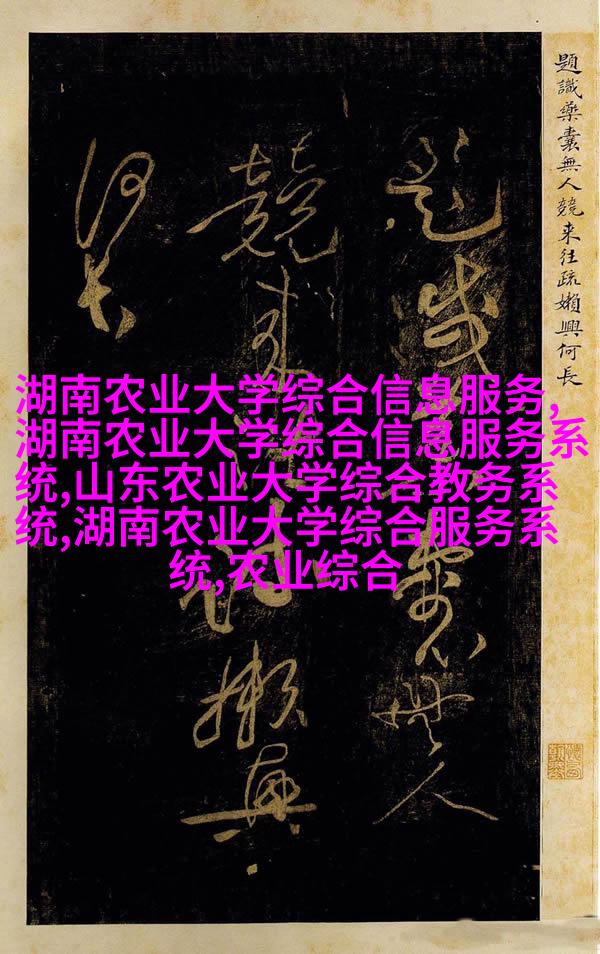 題識藥囊無人競来往疏嬾興何長
題識藥囊無人
競来往疏嬾興
何長
湖南农业大学综合信息服务,
湖南农业大学综合信息服务系
统,山东农业大学综合教务系
统,湖南农业大学综合服务系
统,农业综合